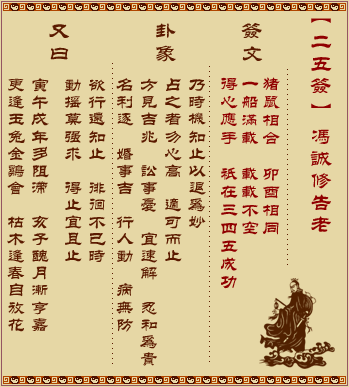 【二五簽】 馮誠修告老
簽文
豬鼠相合 卯酉相同
一船滿載 載載不空
得心應手 祇在三四五成功
卦象
乃時機知止以退為妙
占之者勿心高 適可而止
方見吉兆 訟事憂 宜速解 忍和為貴
名利逐 婚事吉 行人動 病無防
又曰
欲行還知止 徘徊不已時
動搖莫強求 得止宜且止
寅午戌年多阻滯 亥子醜月漸亨嘉
更逢玉兔金鷄會 枯木逢春自放花